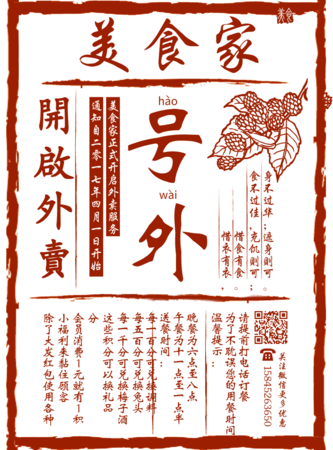 美食
美食家
開啟外賣
通知自二零一七年四月一日开始
美食家正式开启外卖服务
hào
号
wài
外
惜衣有衣，
惜食有食，
食不过佳，充饥則可；
身不过华；遮身則可；
除了大发红包使用各种
小福利来黏住顾客
会员消费1元就有1积
分
这些积分可以换礼品
每一千分可兑换梅子酒
每五百分可兑换兔头
每一百分可兑换调料
送餐时间：
午餐为十一点至一点半
晚餐为六点至八点
温馨提示：
为了不耽误您的用餐时间
请提前打电话订餐
15845263650
关注微信更多优惠